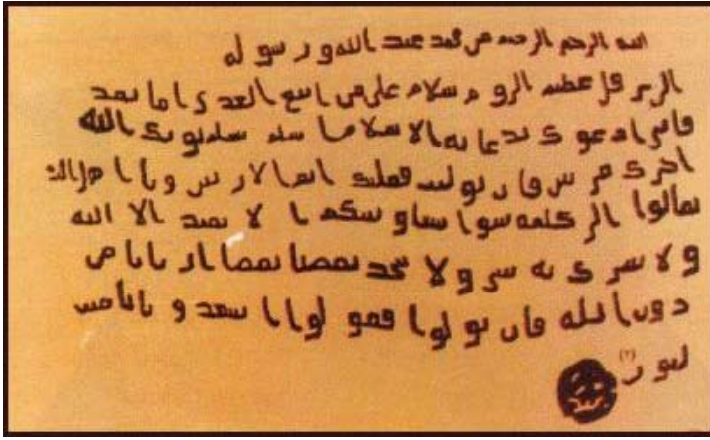 الله الرحمن الرحيم من محمد عبد الله ورسوله
الى هرقل عظيم الروم سلام على من اتبع الهدى اما بعد
فانى ادعوك بدعاية الاسلام اسلم تسلم يوتك الله
اجرك مرتين فان توليت فعليك اثم الاريسين ويا اهل الك
تعالوا الى كلمة سوا بيننا وبينكم ا لا نعبد الا الله
ولا نشرك به شى ولا يتخذ بعضنا بعضا اربابا من
دون الله فان تولوا فقولوا اشهدوا بانا مس
لمون (٢)